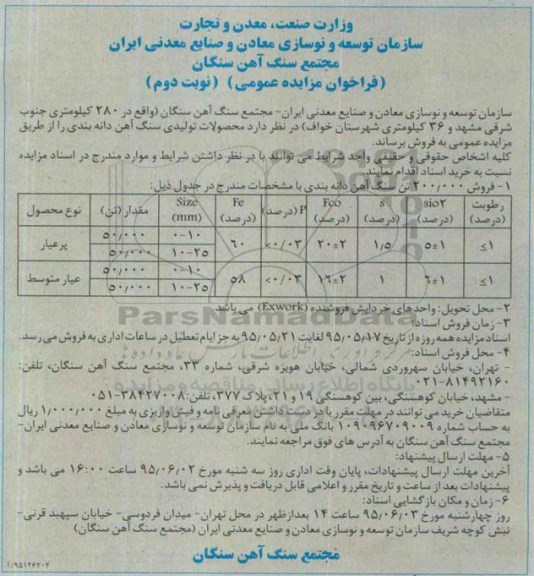 وزارت صنعت، معدن و تجارت
سازمان توسعه و نوسازی معادن و صنایع معدنی ایران
مجتمع سنگ آهن سنگان
(فراخوان مزایده عمومی) (نوبت دوم)
سازمان توسعه و نوسازی معادن و صنایع معدنی ایران- مجتمع سنگ آهن سنگان (واقع در ۲۸۰ کیلومتری جنوب
شرقی مشهد و ۳۶ کیلومتری شهرستان خواف) در نظر دارد محصولات تولیدی سنگ آهن دانه بندی را از طریق
مزایده عمومی به فروش برساند.
کلیه اشخاص حقوقی و حقیقی واجد شرایط می توانند با در نظر داشتن شرایط و موارد مندرج در اسناد مزایده
نسبت به خرید اسناد اقدام نمایند.
۱- فروش ۲۰۰٫۰۰۰ تن سنگ آهن دانه بندی با مشخصات مندرج در جدول ذیل:
نوع محصول مقدار (تن) Size (mm) Fe (درصد) P (درصد) Feo (درصد) s (درصد) sio۲ (درصد) رطوبت (درصد)
پرعیار ۵۰٫۰۰۰ ۰-۱۰ ۶۰ <۰/۰۳ ۲۰±۲ ۱/۵ ۵±۱ ≤۱
۵۰٫۰۰۰ ۱۰-۲۵
عیار متوسط ۵۰٫۰۰۰ ۰-۱۰ ۵۸ <۰/۰۳ ۱۶±۲ ۱ ۶±۱ ≤۱
۵۰٫۰۰۰ ۱۰-۲۵
۲- محل تحویل: واحدهای خردایش فروشنده (Exwork) می باشد.
۳- زمان فروش اسناد:
اسناد مزایده همه روزه از تاریخ ۹۵/۰۵/۱۷ لغایت ۹۵/۰۵/۲۱ به جز ایام تعطیل در ساعات اداری به فروش می رسد.
۴- محل فروش اسناد:
- تهران، خیابان سهروردی شمالی، خیابان هویزه شرقی، شماره ۳۳، مجتمع سنگ آهن سنگان، تلفن:
۰۲۱-۸۱۴۹۲۱۶۰
- مشهد، خیابان کوهسنگی، بین کوهسنگی ۱۹ و ۲۱، پلاک ۳۷۷، تلفن: ۳۸۴۲۷۰۰۸-۰۵۱
متقاضیان خرید می توانند در مهلت مقرر با در دست داشتن معرفی نامه و فیش واریزی به مبلغ ۱٫۰۰۰٫۰۰۰ ریال
به حساب شماره ۱۰۹۰۹۶۷۰۹۰۰۹ بانک ملی به نام سازمان توسعه و نوسازی معادن و صنایع معدنی ایران-
مجتمع سنگ آهن سنگان به آدرس های فوق مراجعه نمایند.
۵- مهلت ارسال پیشنهاد:
آخرین مهلت ارسال پیشنهادات، پایان وقت اداری روز سه شنبه مورخ ۹۵/۰۶/۰۲ ساعت ۱۶:۰۰ می باشد و
پیشنهادات بعد از ساعت و تاریخ مقرر و اعلامی قابل دریافت و پذیرش نمی باشد.
۶- زمان و مکان بازگشایی اسناد:
روز چهارشنبه مورخ ۹۵/۰۶/۰۳ ساعت ۱۴ بعدازظهر در محل تهران- میدان فردوسی- خیابان سپهبد قرنی-
نبش کوچه شریف سازمان توسعه و نوسازی معادن و صنایع معدنی ایران (مجتمع سنگ آهن سنگان)
مجتمع سنگ آهن سنگان
ParsNamadData
پایگاه اطلاع رسانی مناقصه و مزایده